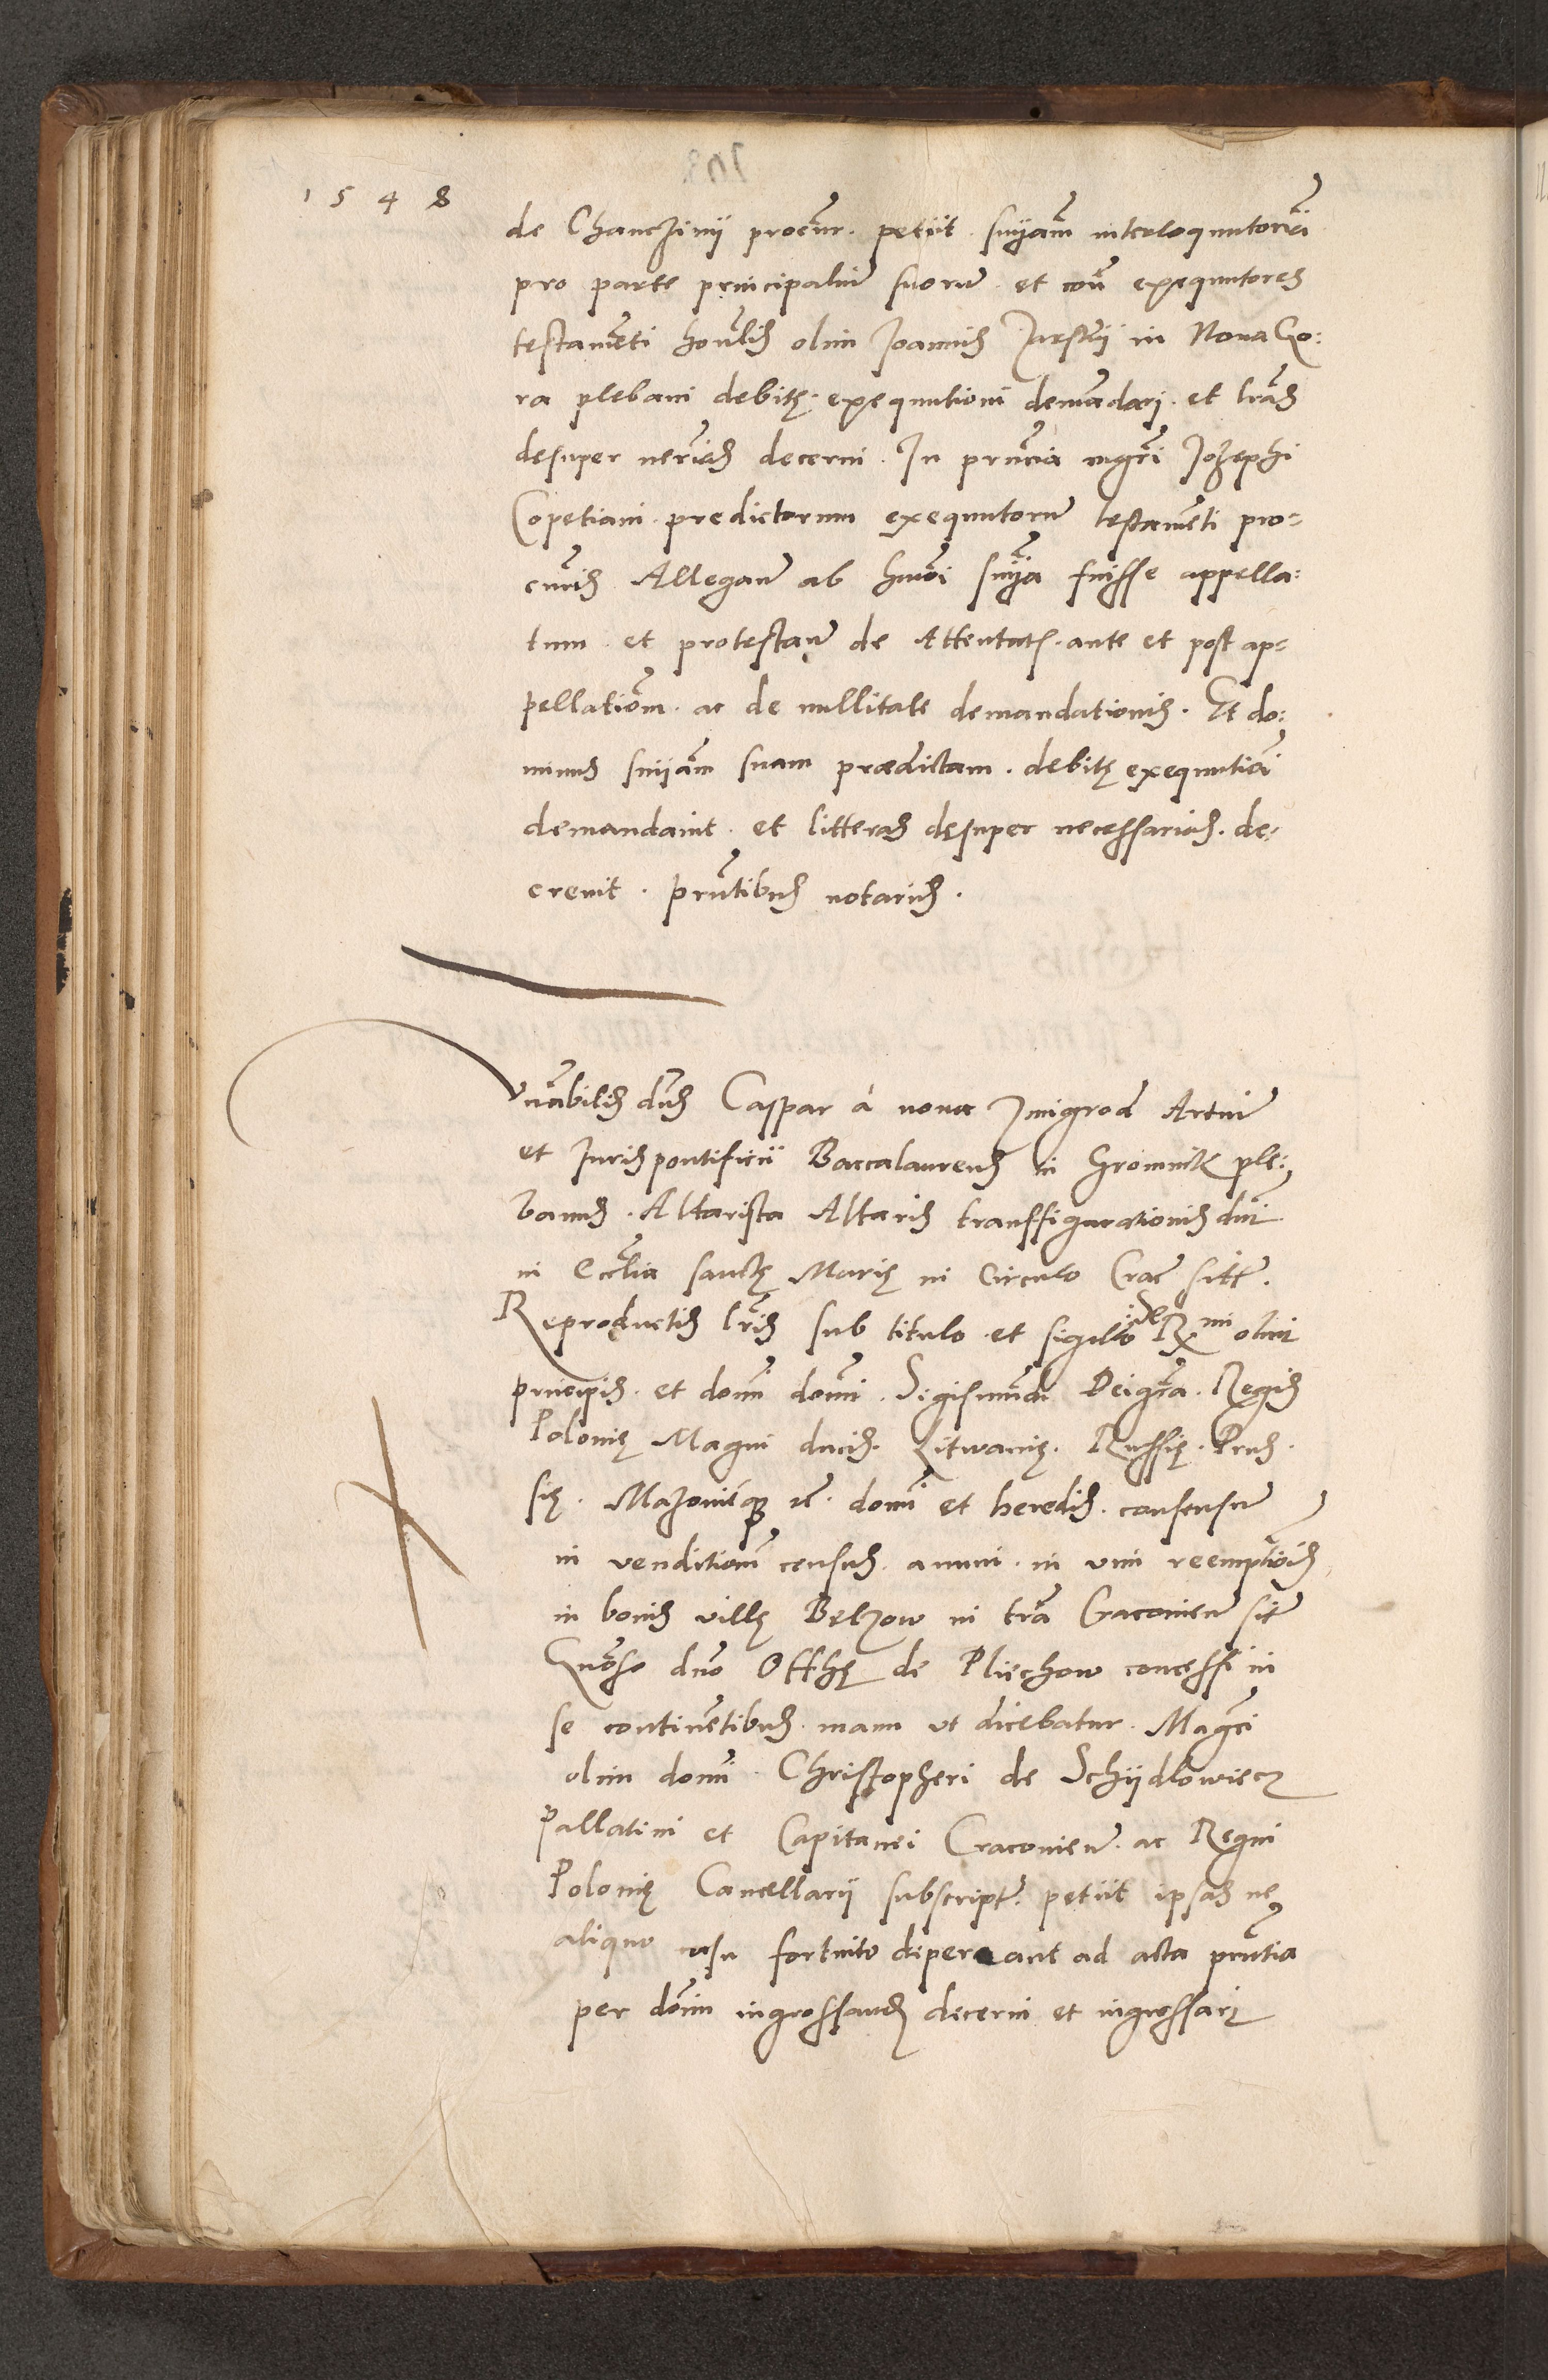 1548
de Chanczinij procur. petiit snÿam interloqnutoriã
pro parte principaliũ suorũ et coñ exequutores
testamẽti honlis olim Joannis Jarskij in Nova Go:
ra plebani debitę exequutioni demãdari et lrãs
desuper nerias decerni. In prñtia mgri Jozephi
Copetiani predictorum exequutorũ testamẽti pro:
curis Allegan ab hmõi snÿa fuisse appella:
tum et protestan de Attentatis ante et post ap:
pellatiõm ac de nullitate demandationis. Et do:
minus snÿam suam prædictam debitę exequutiõi
demandavit et litteras desuper necessarias de:
crevit. prñtibus notarius.
Vnãbilis dñs Caspar à nova Zmigrod Artiũ
et Juris pontificii Baccalaureus in Gromnik ple:
banus. Altarista Altaris transffigurationis dñi
in Eccłia sanctę Marię in Circulo Crac̃ sitt.
Reproductis lris sub titulo et sigillo Se R mi olim
principis et domi domi Sigismũdi Dei grã Regis
Polonię Magni ducis Litwanię. Russię. Prus
się. Mazovięq; zc̃ domi et heredis consensũ
in venditiõm census annui in vim reemptiõis
in bonis villę Belzow in trã Cracovien sit
Gnõso dño Offkę de Pliechow concessi in
se continẽtibus manu ut dicebatur Magci
olim domi Christopheri de Schijdlowiecz
Pallatini et Capitanei Cracovien ac Regni
Polonię Cancellarij subscript. petiit ipsas ne
aliquo casu fortuito depereant ad acta prñtia
per dõm ingrossandas decerni et ingrossari